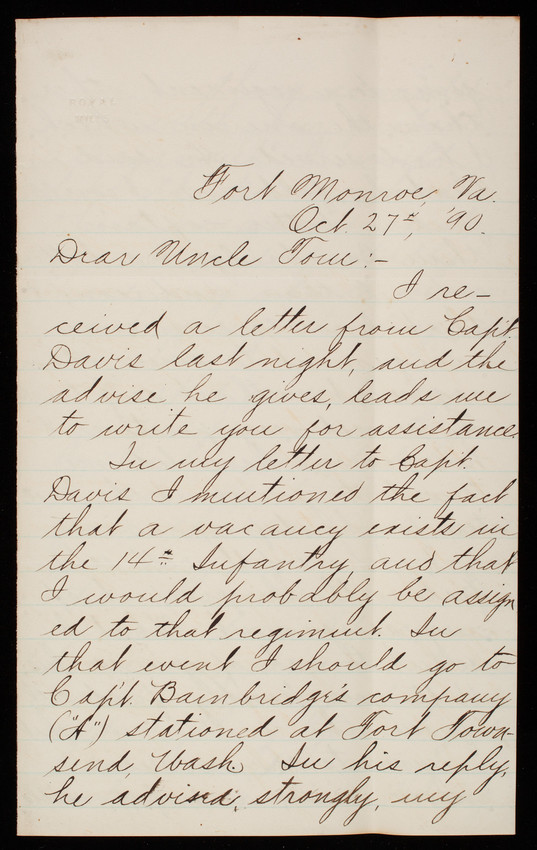 Fort Monroe, Va.
Oct. 27th, '90.
Dear Uncle Tom:-
I re-
ceived a letter from Capt.
Davis last night, and the
advise he gives, leads me
to write you for assistance.
In my letter to Capt.
Davis I mentioned the fact
that a vacancy exists in
the 14th Infantry and that
I would probably be assign
ed to that regiment. In
that event I should go to
Capt. Bainbridge's company
("A") stationed at Fort Town-
send, Wash. In his reply,
he advised, strongly, my